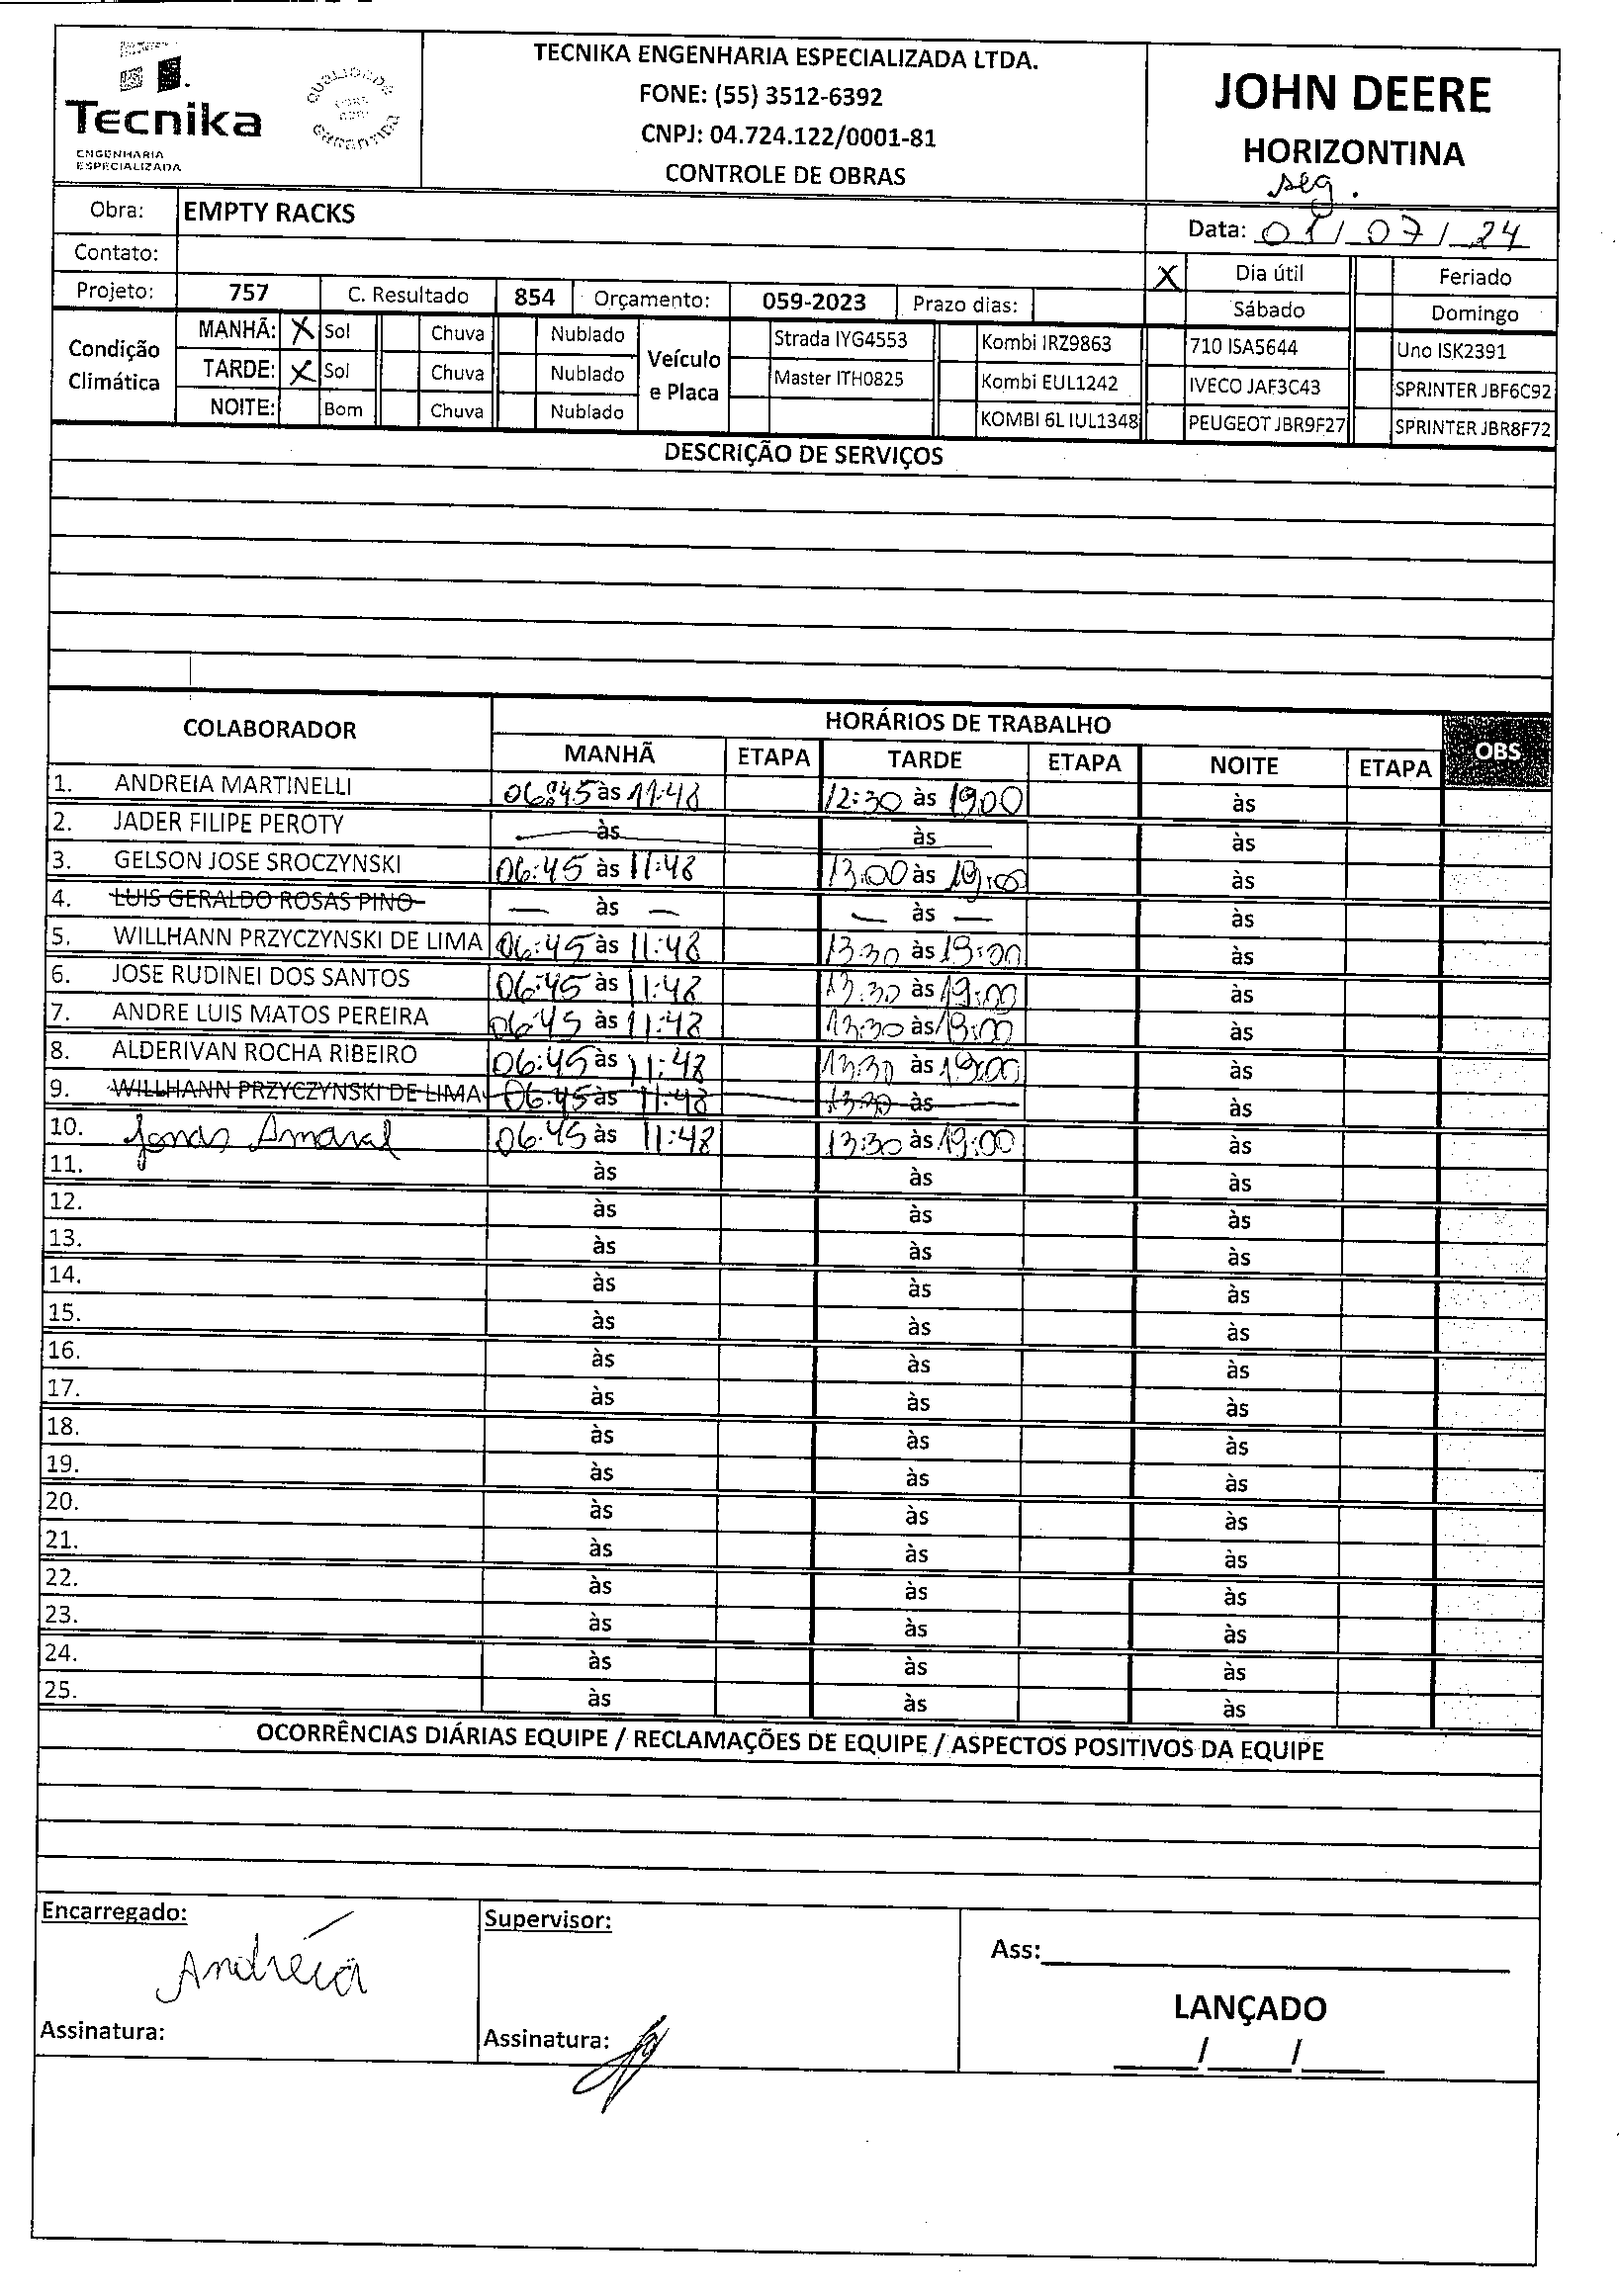 Tecnika
ENGENHARIA
ESPECIALIZADA
QUALIDADE
GARANTIDA
TECNIKA ENGENHARIA ESPECIALIZADA LTDA.
FONE: (55) 3512-6392
CNPJ: 04.724.122/0001-81
CONTROLE DE OBRAS
JOHN DEERE
HORIZONTINA
seg.
Obra: EMPTY RACKS
Data: 01/07/24
Contato:
X Dia útil Feriado
Projeto: 757 C. Resultado 854 Orçamento: 059-2023 Prazo dias:
Sábado Domingo
Condição Climática
MANHÃ: X Sol Chuva Nublado
TARDE: X Sol Chuva Nublado
NOITE: Bom Chuva Nublado
Veículo e Placa
Strada IYG4553 Kombi IRZ9863 710 ISA5644 Uno ISK2391
Master ITH0825 Kombi EUL1242 IVECO JAF3C43 SPRINTER JBF6C92
KOMBI 6L IUL1348 PEUGEOT JBR9F27 SPRINTER JBR8F72
DESCRIÇÃO DE SERVIÇOS
COLABORADOR HORÁRIOS DE TRABALHO OBS
MANHÃ ETAPA TARDE ETAPA NOITE ETAPA
1. ANDREIA MARTINELLI 06:45 às 11:48 12:30 às 19:00 às
2. JADER FILIPE PEROTY às às às
3. GELSON JOSE SROCZYNSKI 06:45 às 11:48 13:00 às 19:00 às
4. LUIS GERALDO ROSAS PINO — às — — às — às
5. WILLHANN PRZYCZYNSKI DE LIMA 06:45 às 11:48 13:30 às 19:00 às
6. JOSE RUDINEI DOS SANTOS 06:45 às 11:48 13:30 às 19:00 às
7. ANDRE LUIS MATOS PEREIRA 06:45 às 11:48 13:30 às 19:00 às
8. ALDERIVAN ROCHA RIBEIRO 06:45 às 11:48 13:30 às 19:00 às
9. WILLHANN PRZYCZYNSKI DE LIMA 06:45 às 11:48 13:30 às às
10. Jonas Amaral 06:45 às 11:48 13:30 às 19:00 às
11. às às às
12. às às às
13. às às às
14. às às às
15. às às às
16. às às às
17. às às às
18. às às às
19. às às às
20. às às às
21. às às às
22. às às às
23. às às às
24. às às às
25. às às às
OCORRÊNCIAS DIÁRIAS EQUIPE / RECLAMAÇÕES DE EQUIPE / ASPECTOS POSITIVOS DA EQUIPE
Encarregado:
Andréia
Assinatura:
Supervisor:
Assinatura:
Ass:
LANÇADO
/ /